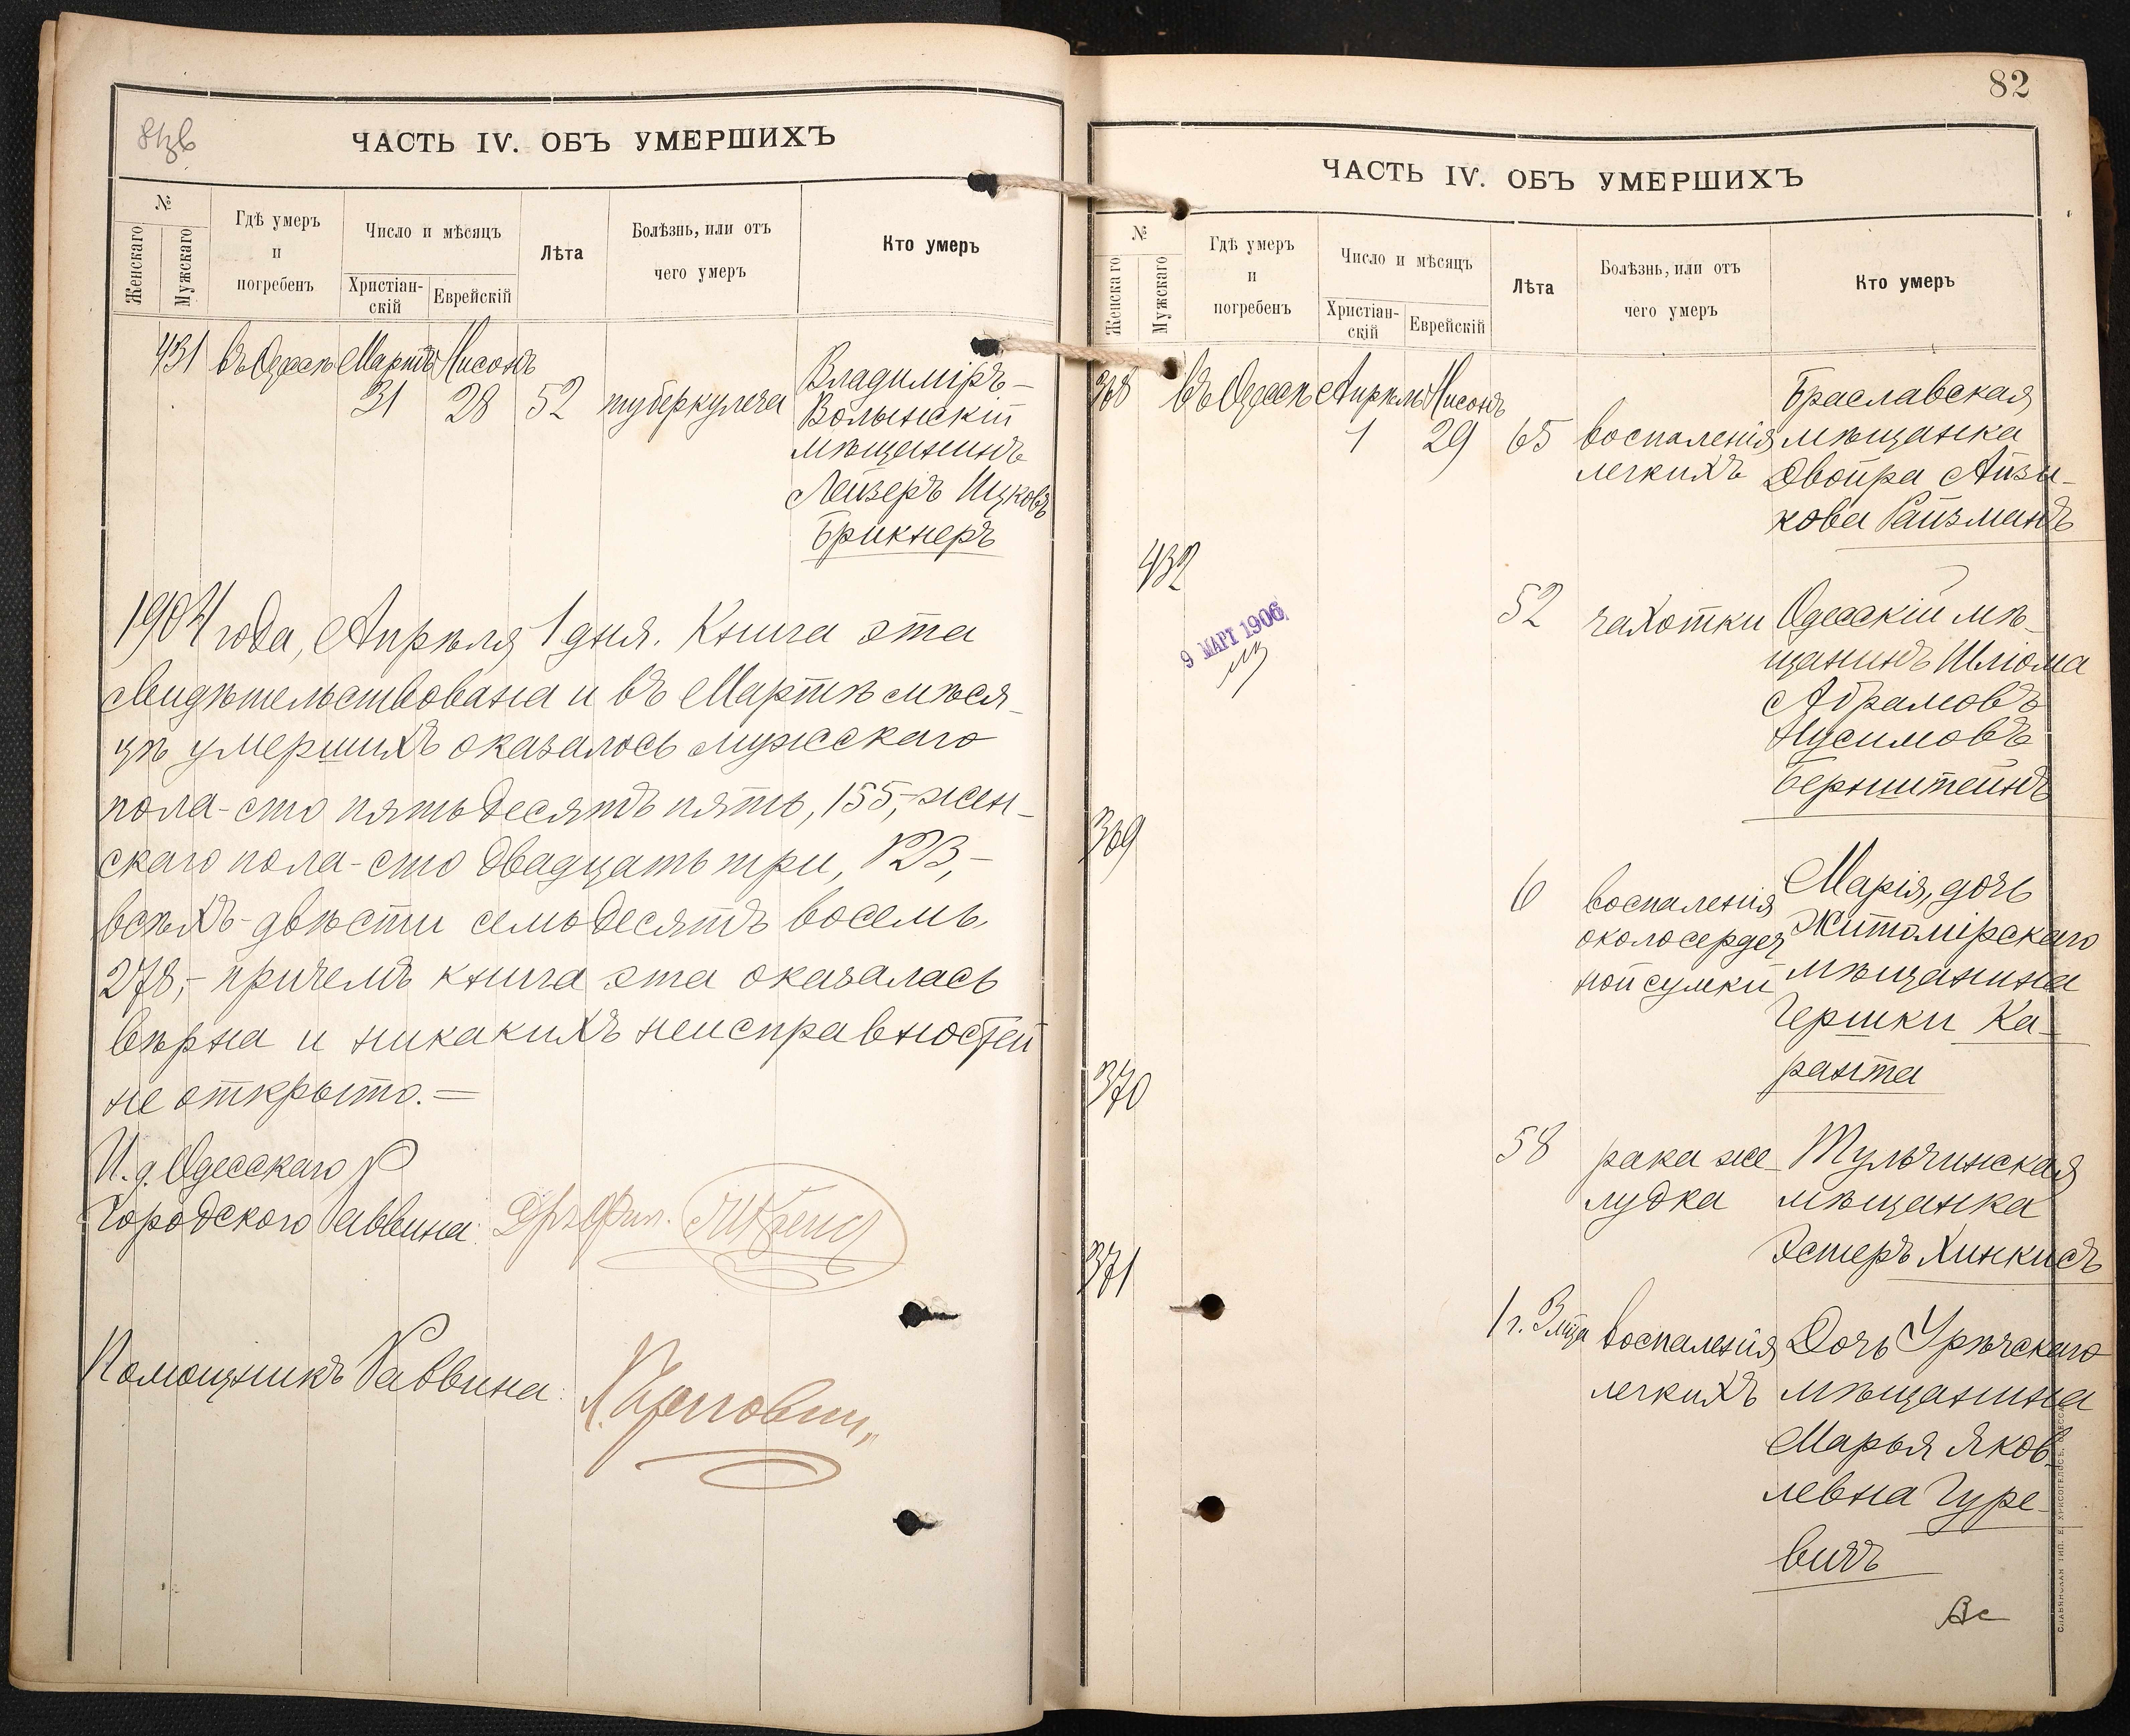 81об
ЧАСТЬ IV. ОБЪ УМЕРШИХЪ
№
Женскаго
Мужскаго
Гдѣ умеръ
и
погребенъ
Число и мѣсяцъ
Христіан-
скій
Еврейскій
Лѣта
Болѣзнь, или отъ
чего умеръ
Кто умеръ
431 въ Одессѣ Мартъ Нисонъ
31 28 52 туберкулеза
Владиміръ-
Волынскій
мѣщанинъ
Лейзеръ Ицковъ
Брикнеръ
1904 года, Апрѣля 1 дня. Книга эта
свидѣтельствована и въ Мартѣ мѣся-
цѣ умершихъ оказалось мужескаго
пола-сто пятьдесятъ пять, 155,-жен-
скаго пола-сто двадцать три, 123,-
всѣхъ-двѣсти семьдесятъ восемь
278,-причемъ книга эта оказалась
вѣрна и никакихъ неисправностей
не открыто.=
И. д. Одесскаго
Городского Раввина:
Помощникъ Раввина:
82
ЧАСТЬ IV. ОБЪ УМЕРШИХЪ
№
Женскаго
Мужскаго
Гдѣ умеръ
и
погребенъ
Число и мѣсяцъ
Христіан-
скій
Еврейскій
Лѣта
Болѣзнь, или отъ
чего умеръ
Кто умеръ
368 въ Одессѣ Апрѣль Нисонъ
1 29 65 воспаленія
легкихъ
Браславская
мѣщанка
Двойра Айзи-
кова Райзманъ
432
9 МАРТ 1906
52 чахотки
Одесскій мѣ-
щанинъ Шлiома
Абрамовъ
Нусимовъ
Бернштейнъ
369
6 воспаленія
околосердеч
ной сумки
Марія, дочь
Житомірскаго
мѣщанина
Гершки Ка-
ранта
370
58 рака же-
лудка
Тульчинская
мѣщанка
Эстеръ Хинкисъ
371
1 г. 3 мѣца воспаленія
легкихъ
Дочь Урѣчскаго
мѣщанина
Марья Яков-
левна Гуре-
вичъ
СЛАВЯНСКАЯ ТИП. Е. ХРИСОГЕЛОСЪ, ОДЕССА